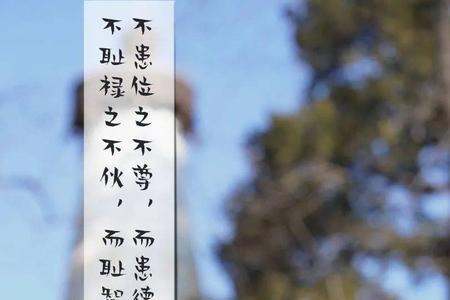 不患位之不尊，而患德
不耻禄之不伙，而耻智